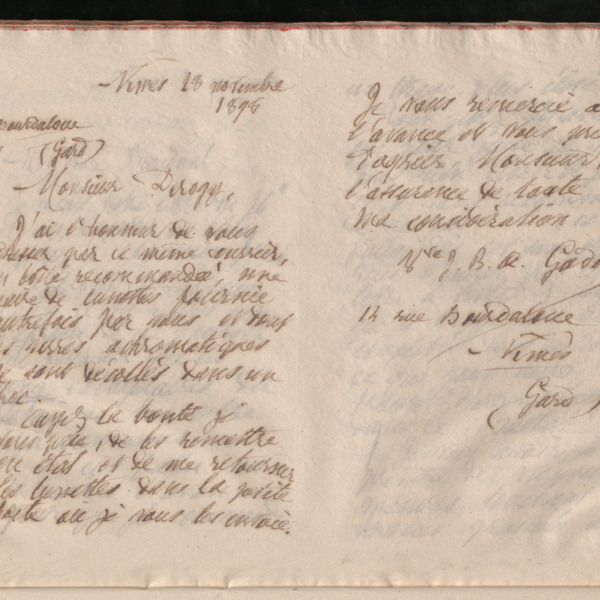 Nîmes 18 novembre
1896
Bourdaloue
(Gard)
Monsieur Derogy,
J'ai l'honneur de vous
adresser par ce même courrier,
en boîte recommandée, une
paire de lunettes fournie
autrefois par vous et dont
les verres achromatiques
se sont décollés dans un
Ayez la bonté je
vous prie, de les remettre
en état et de me retourner
les lunettes dans la petite
boîte où je vous les envoie.
Je vous remercie
l'avance et vous
d'agréer, Monsieur
l'assurance de toute
ma considération
Vte J. B. de
14 rue Bourdaloue
Nîmes
(Gard)